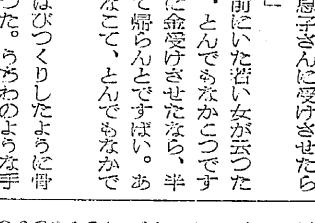 息子さんに受けさせたら
」
前にいた若い女が云つた
、とんでもなかこつです
に金受けさせたなら、半
て帰らんとですばい。あ
なこて、とんでもなかで
はびつくりしたように骨
つた。うちわのような手